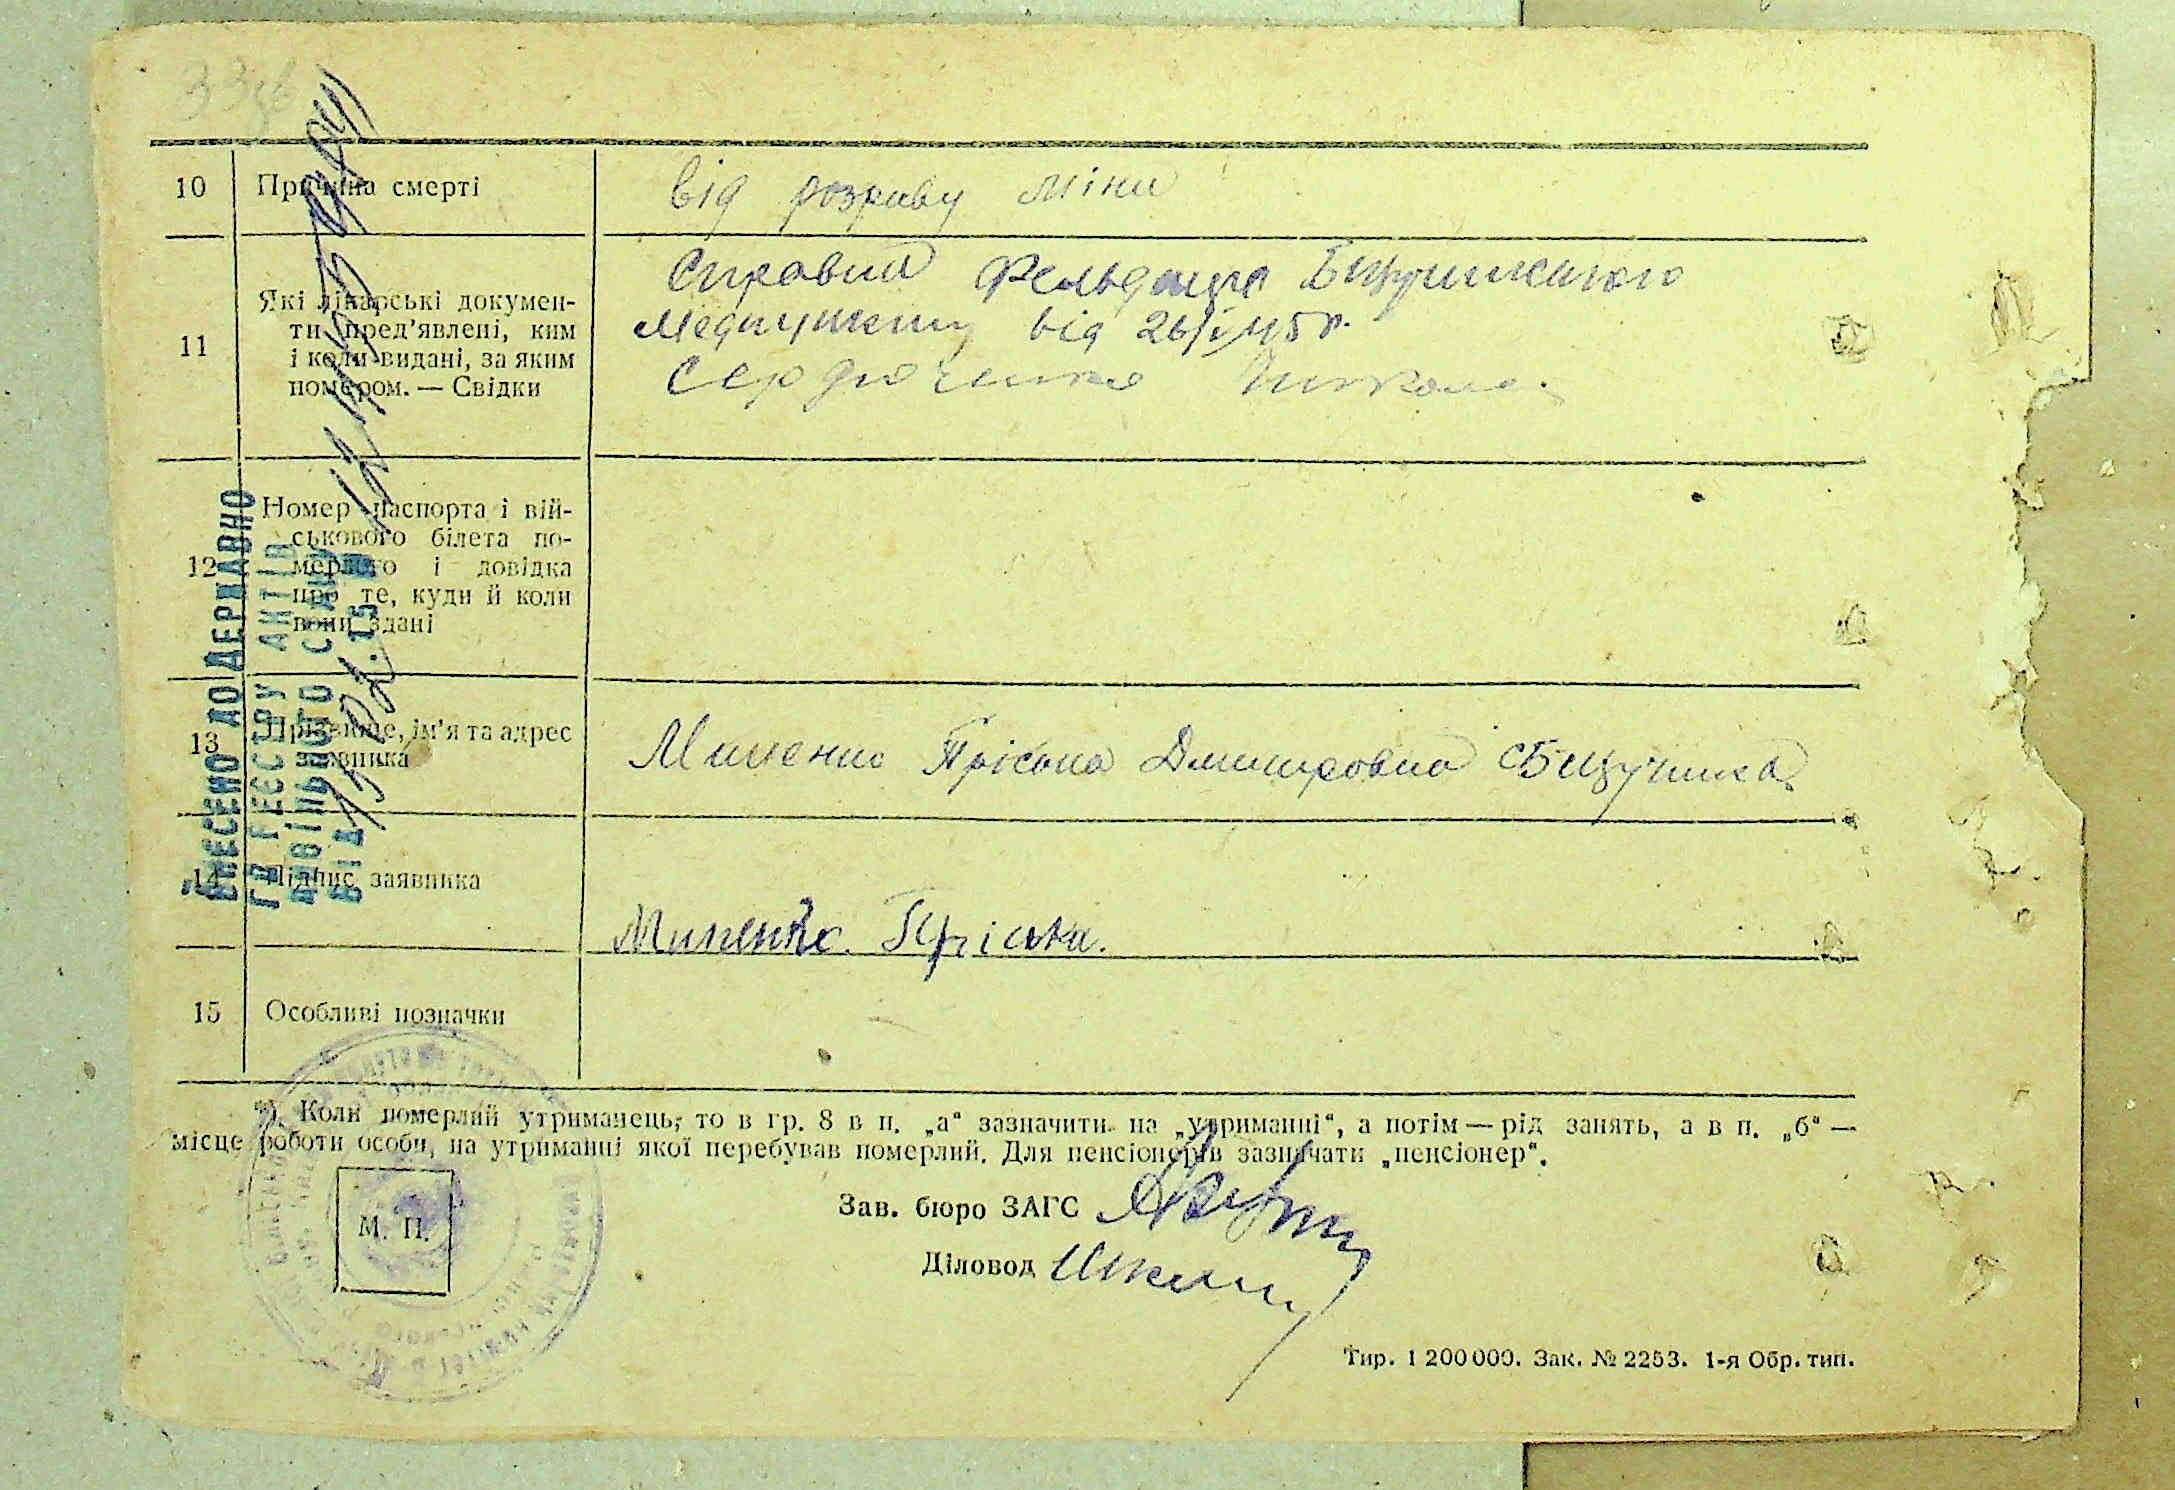 33зв
10 Причина смерті
від розриву міни
11 Які лікарські докумен-
ти пред’явлені, ким
і коли видані, за яким
номером. — Свідки
Справка Фельдшера
Медпункту від 26/І 45 р.
Сердюченко
12 Номер паспорта і вій-
ськового білета по-
мерлого і довідка
про те, куди й коли
вони здані
13 Прізвище, ім’я та адрес
заявника
Миненко Пріська Дмитровна
14 Підпис заявника
Миненко Пріська.
15 Особливі позначки
*) Коли померлий утриманець, то в гр. 8 в п. „а“ зазначити на „утриманні“, а потім — рід занять, а в п. „б“ —
місце роботи особи, на утриманні якої перебував померлий. Для пенсіонерів зазначати „пенсіонер“.
Зав. бюро ЗАГС
М. П.
Діловод
Тир. 1 200 000. Зак. № 2253. 1-я Обр. тип.
ВНЕСЕНО ДО ДЕРЖАВНО
ГО РЕЄСТРУ АКТІВ
ЦИВІЛЬНОГО СТАНУ
ВІД